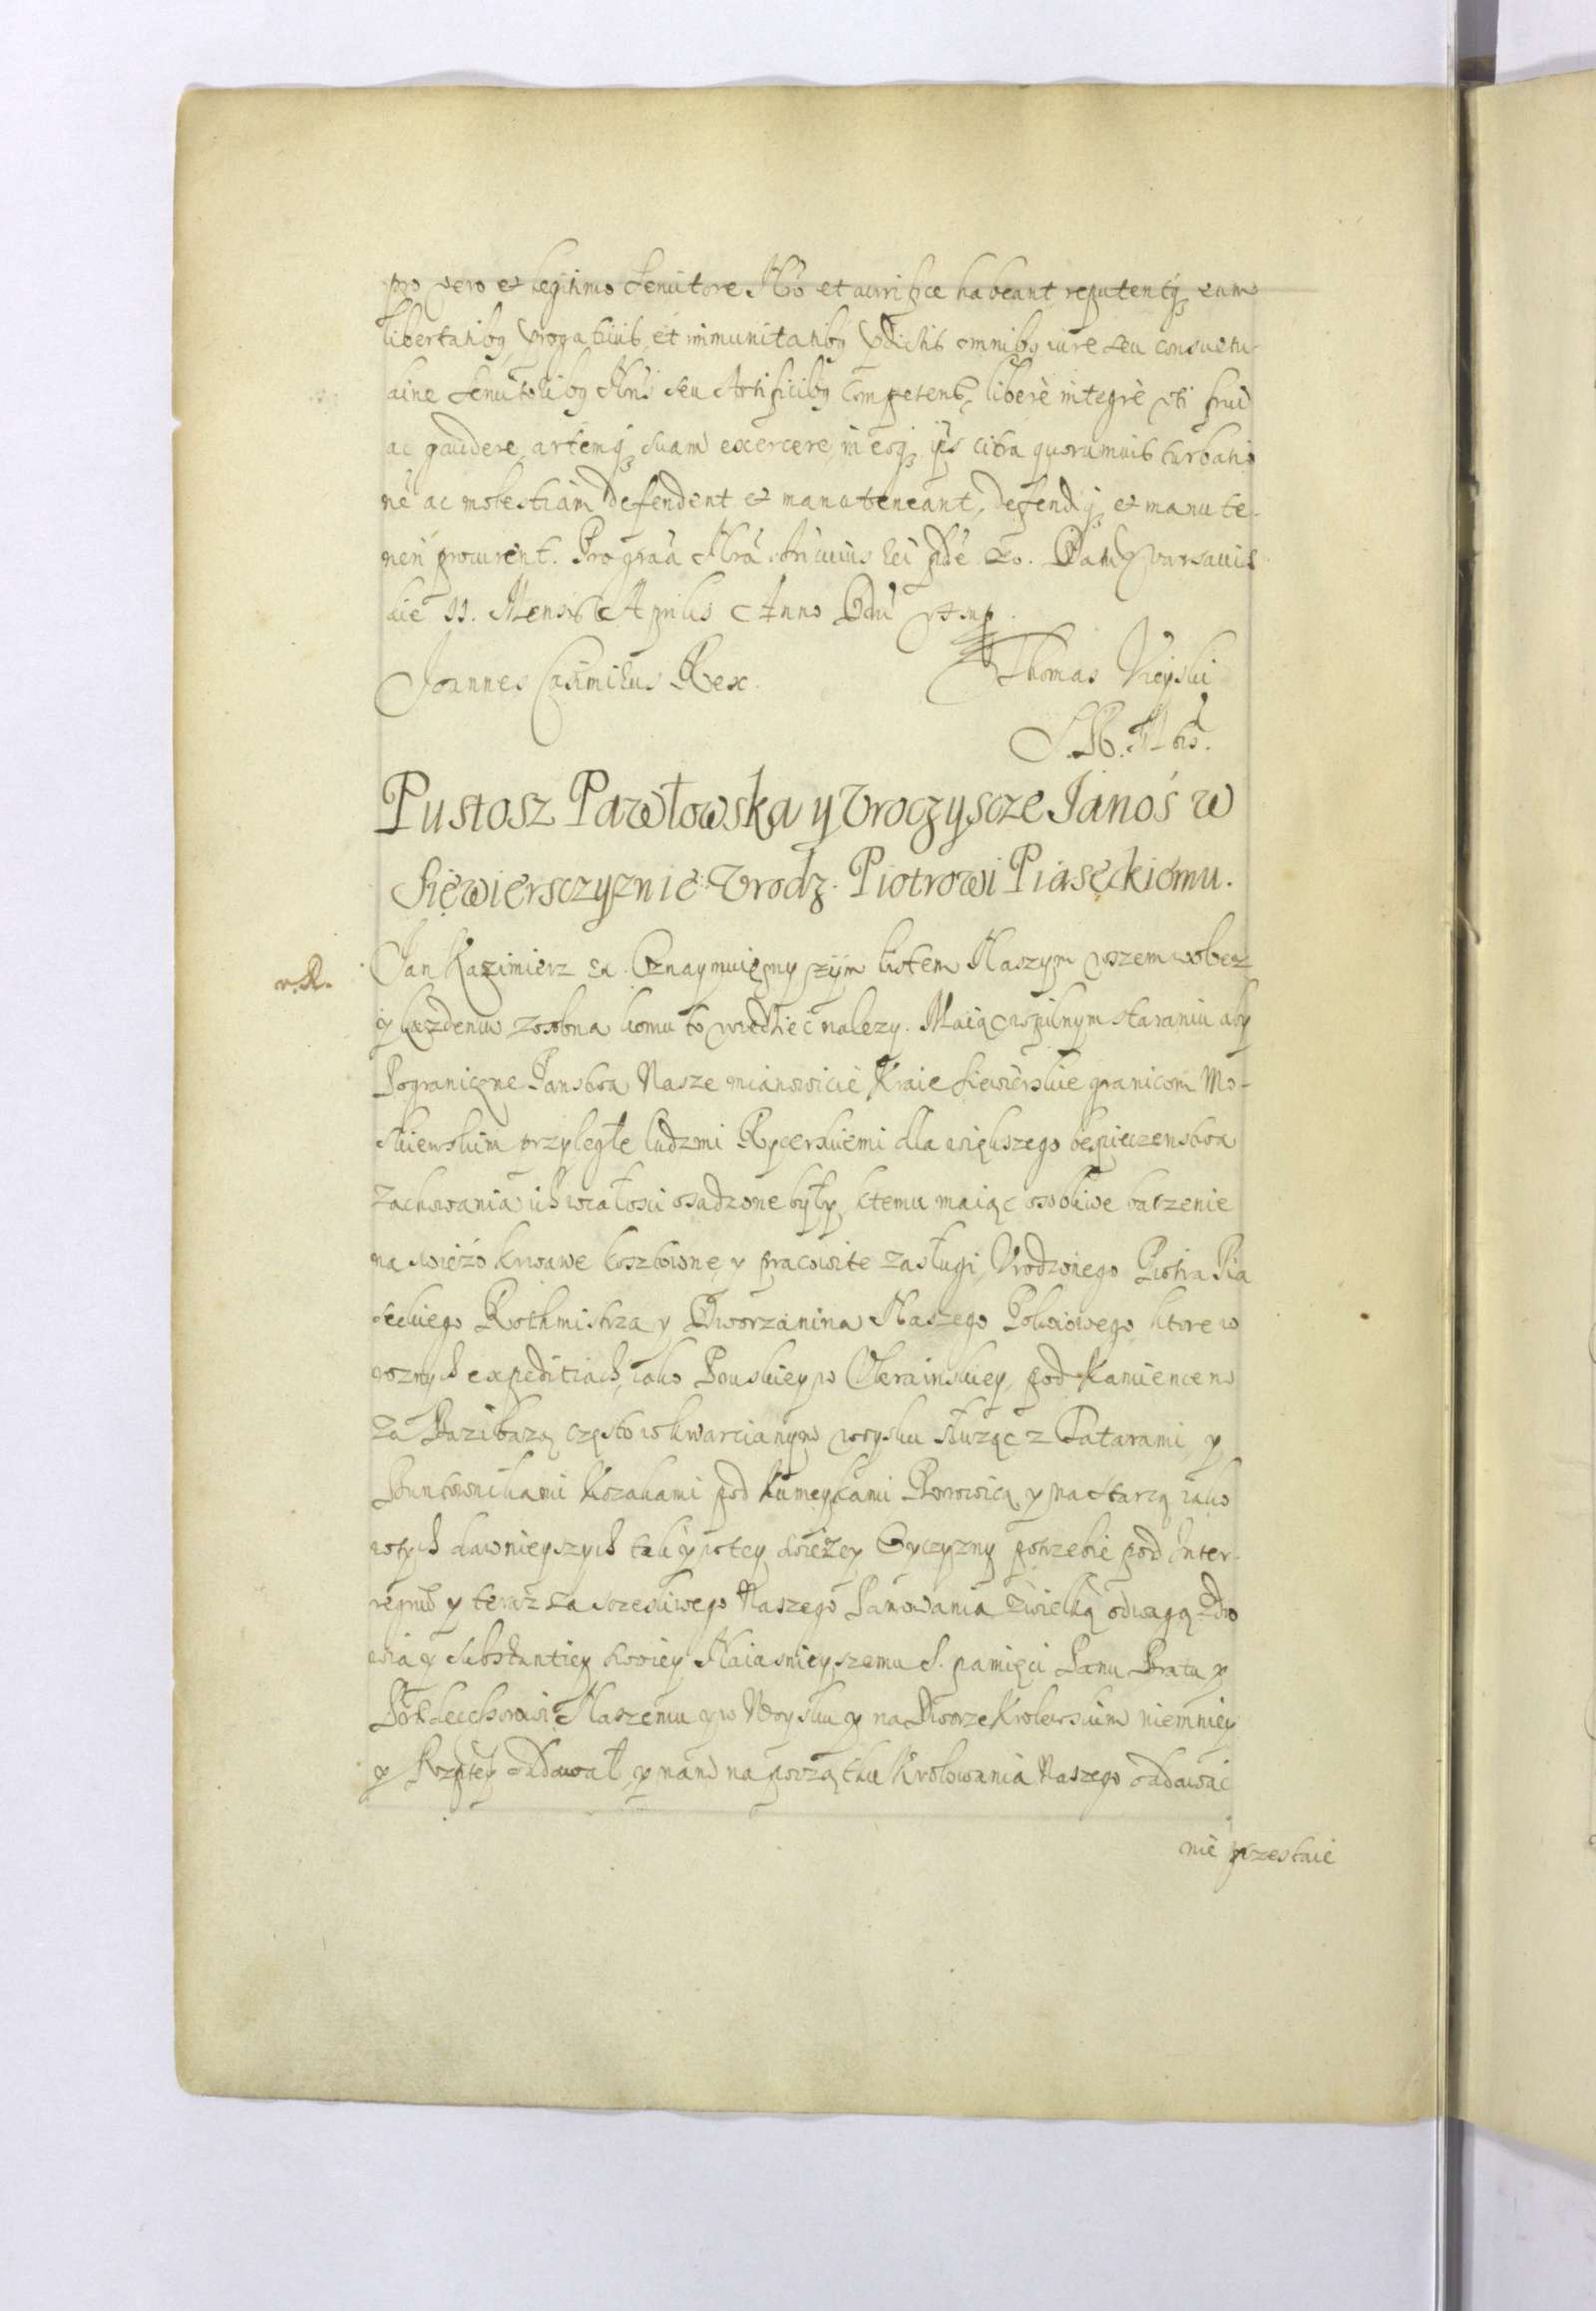 pro vero et legitimo Servitore Nr̃o et aurifice habeant reputentq; eum
libertatibq; prærogativis, et immunitatibq; p̃dictis omnibq; iure seu consuetu-
dine Servitoribq; Nr̃is seu Artificibq; competent, libere integrè uti frui
ac gaudere, artemq; suam exercere, in eoq; ip̃s citra quorumvis turbatio
nẽ ac molestiam defendent et manuteneant, defendiq; et manute-
neri procurent. Pro gr̃ãa Nr̃a Datum Varsaviæ
die 11. Mensis Aprilis Anno Dñi ut sup.
Joannes Casimirus Rex. Thomas Vieyski
S. R. Mtis.
Pustosz Pawłowska y Vroczyscze Janoś w
Siewiersczyznie Vrodz. Piotrowi Piaseckiemu.
v.R. Jan Kazimierz &c. Oznaymuięmy tym listem Naszym wszem wobec
y kazdemu zosobna komu to wiedziec nalezy. Maiąc wpilnym staraniu aby
Pograniczne Panstwa Nasze mianowicie Kraie Siewierskie granicom Mo-
skiewskim przyległe ludzmi Rycerskiemi dla większego bespieczenstwa
zachowania ich wcałosci osadzone były, ktemu maiąc osobliwe baczenie
na swieżo krwawe kosztowne y pracowite zasługi, Vrodzonego Piotra Pia
seckiego Rothmistrza y Dworzanina Naszego Pokoiowego, ktore w
roznych expeditiach, iako Pruskiey, w Vkrainskiey, pod Kamiencem
za Bazibaszą często w kwarcianym woysku służąc z Tatarami, y
Buntownikami Kozakami pod Kumeykami Borowicą y na Starcą iako
wtych dawnieyszych tak y wtey swieżey Oyczyzny potrzebie pod Inter-
regnũ y teraz za sczesliwego Naszego Panowania zwielką odwagą zdro
wia y substantiey swoiey Naiasnieyszemu S. pamięci Panu Bratu y
Naszemu y w Woysku y na Dworze Krolewskim niemniey
y Rzptey oddawał, y nam na początku Krolowania Naszego oddawac
nie przestaie